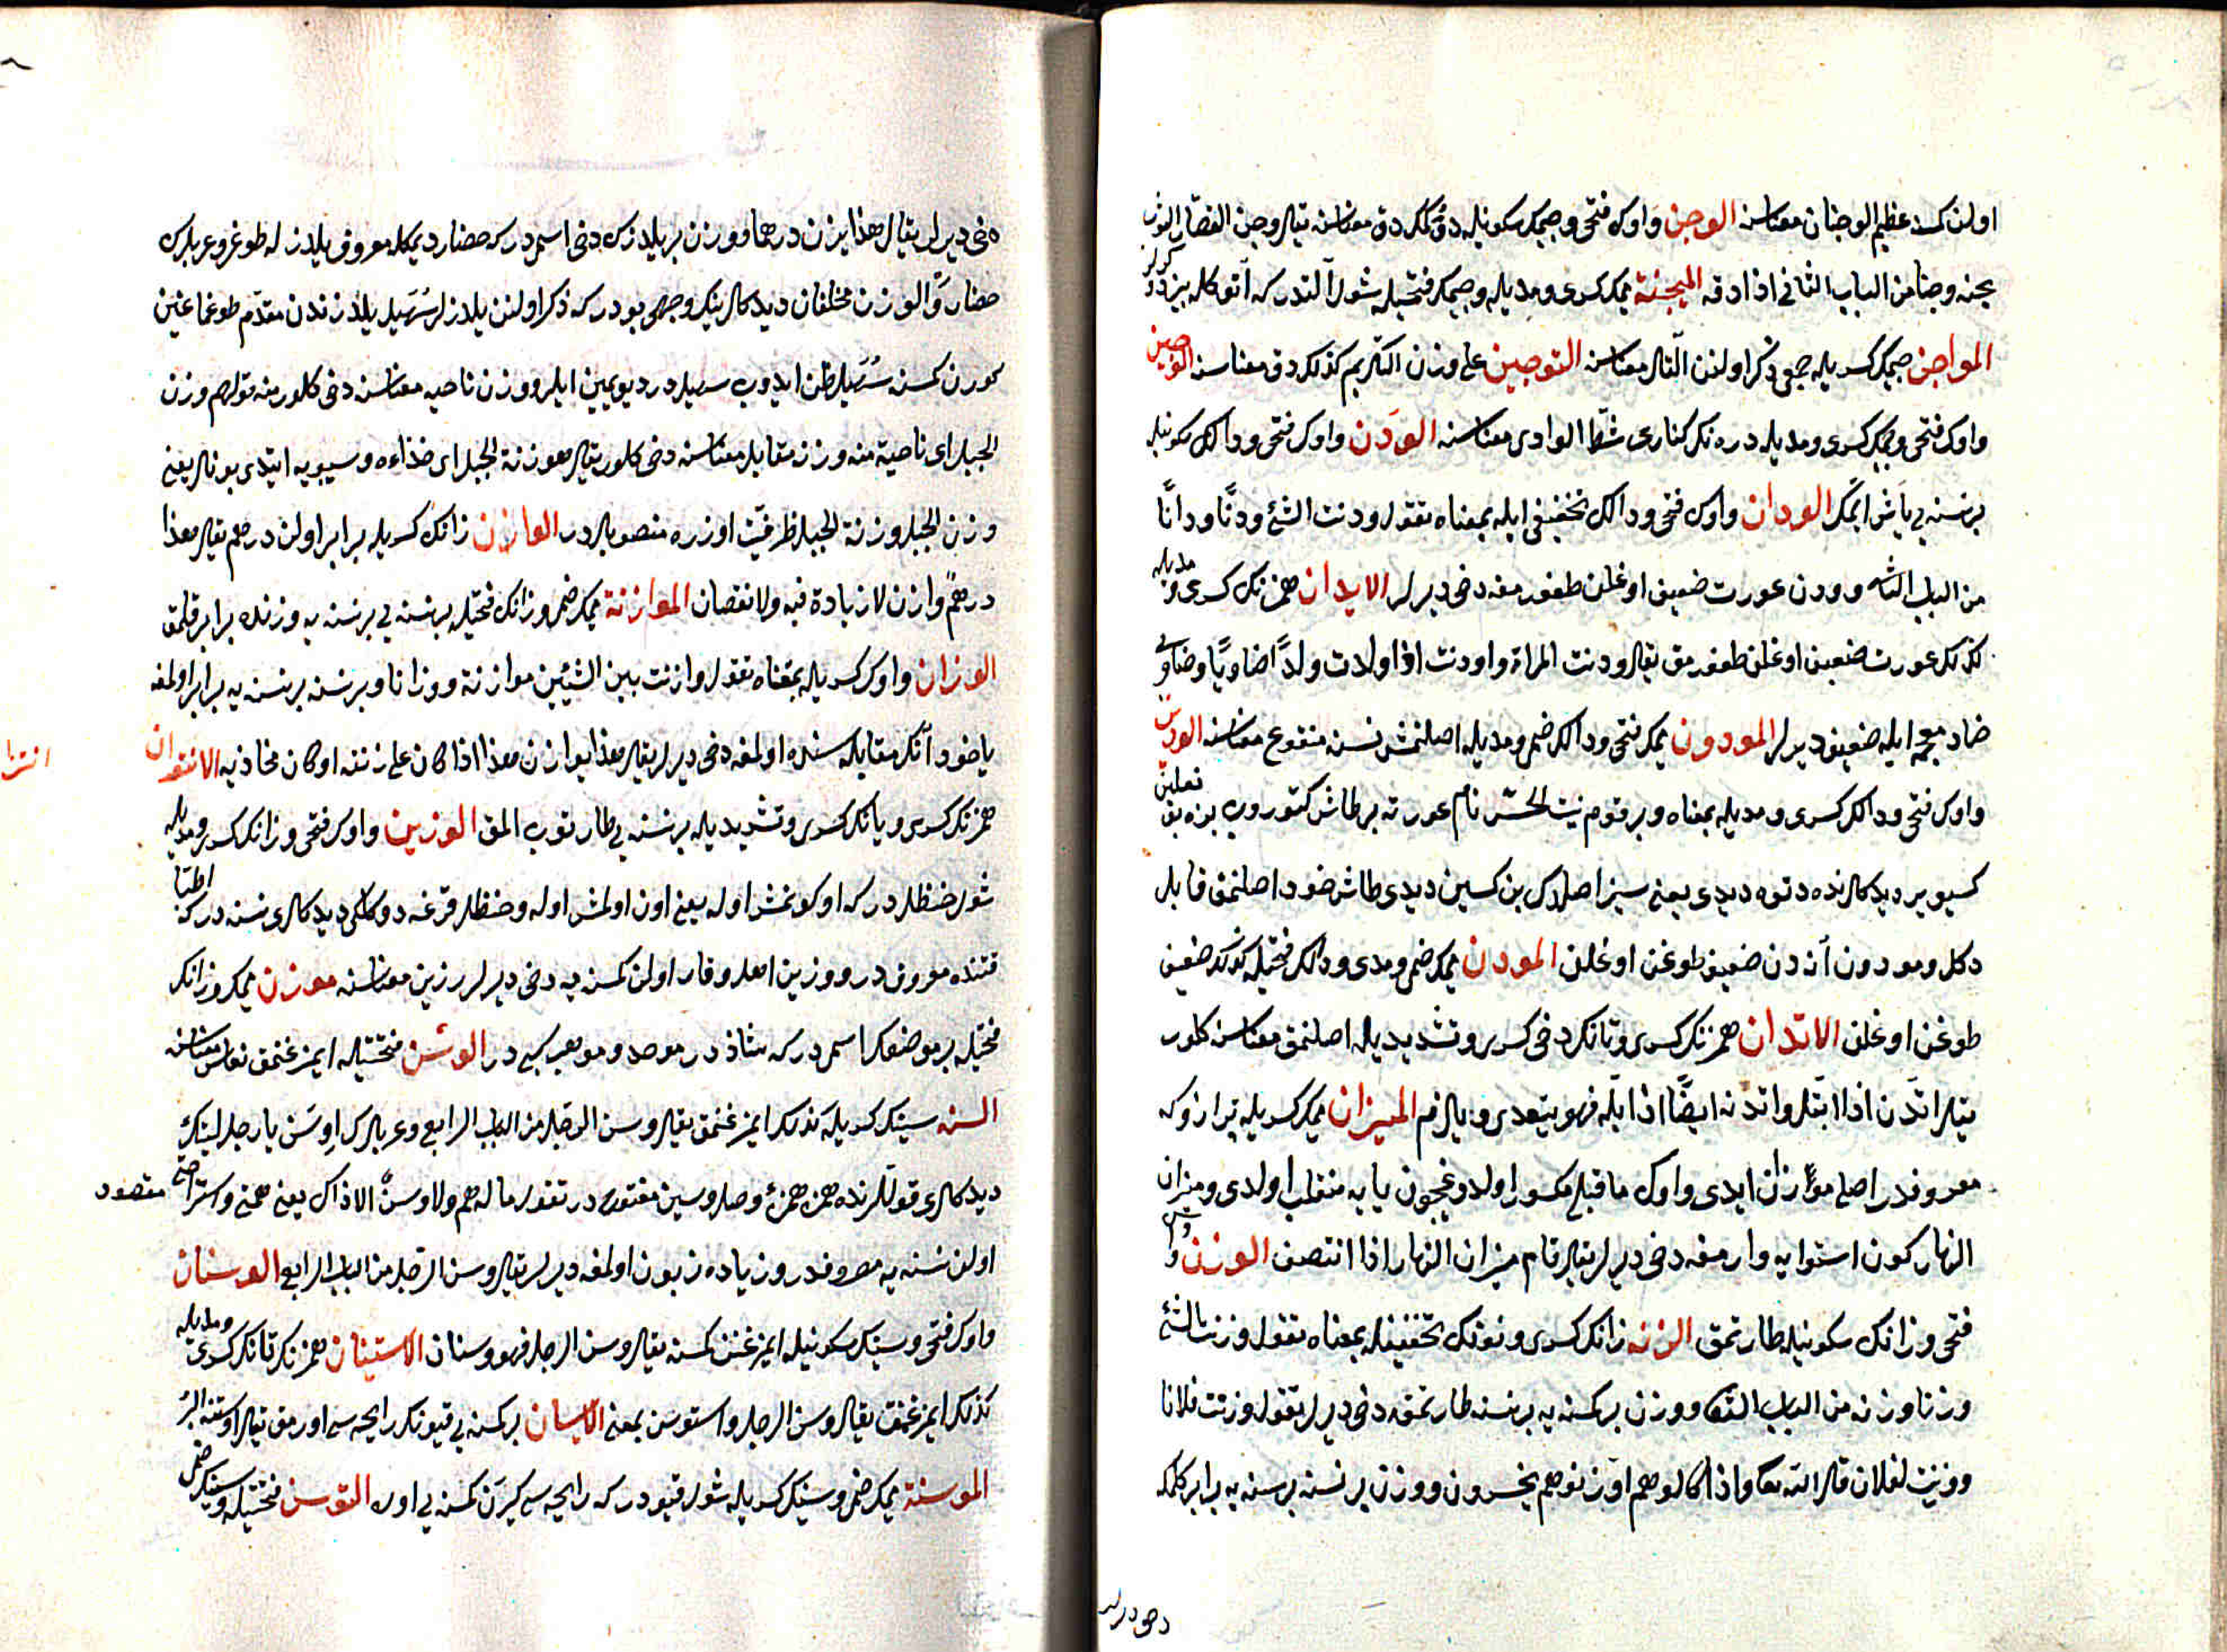 اولن كمسنه عظيم الوجنان معناسنه الوجن واوك فتحى وجيمك سكونيله دق كمك دق معناسنه يقال وجن القصار الثوب
يجنه وجنا من الباب الثانى اذا دقه الميجنة ميمك كسرى ومديله وجيمك فتحيله شول آلتدر كه آنوكله بز دوكرلر
المواجن جيمك كسريله جمعى ذكر اولنن آلتلر معناسنه التوجين على وزن التكريم كذلك دق معناسنه الوجين
واوك فتحى وجيمك كسرى ومديله دره نك كنارى شط الوادى معناسنه الودن واوك فتحى ودالك سكونيله
بر نسنه يى ياش ايتمك الودان واوك فتحى ودالك تخفيفى ايله بمعناه تقول ودنت الشئ ودنا ودانا
من الباب الثانى وودن عورت ضعيف اوغلن طغورمغه دخى ديرلر الايدان همزنك كسرى ومديله
كذلك عورت ضعيف اوغلن طغورمق يقال ودنت المراة واودنت اذا ولدت ولدا ضاويا وضاوى
ضاد معجمه ايله ضعيف ديرلر المودون ميمك فتحى ودالك ضمى ومديله اصلنمش نسنه منقوع معناسنه الودين
واوك فتحى ودالك كسرى ومديله بمعناه وبر قوم بنت الحس نام عورته بر طاش كتوروب بزه بوندن نعلين
كسيوير ديدكلرنده دنوه ديدى يعنى سيز اصلادك بن كسين ديدى طاش خود اصلنمق قابل
دكل ومودون آندن ضعيف طوغن اوغلن المودن ميمك ضمى ومدى ودالك فتحيله كذلك ضعيف
طوغن اوغلن الاتدان همزنك كسرى وتانك دخى كسرى وتشديديله اصلنمق معناسنه كلور
يقال اتدن اذا ابتل واتدنه ايضا اذا بله فهو يتعدى ويلزم الميزان ميمك كسريله ترازو كه
معروفدر اصلى موزان ايدى واوك ما قبلى مكسور اولدوغيچون يايه منقلب اولدى وميزان
النهار كون استوايه وارمغه دخى ديرلر يقال قام ميزان النهار اذا انتصف الوزن واوك
فتحى وزانك سكونيله طارتمق الزنه زانك كسرى ونونك تخفيفيله بمعناه تقول وزنت الشئ
وزنا وزنه من الباب الثانى ووزن بر كمسنه يه بر نسنه طارتمغه دخى ديرلر تقول وزنت فلانا
ووزنت لفلان قال الله تعالى واذا كالوهم او وزنوهم يخسرون ووزن بر نسنه بر نسنه يه برابر كلمك
دخى ديرلر
دخى ديرلر يقال هذا يزن درهما ووزن بر يلدزك دخى اسمدر كه حضار ديمكله معروف يلدزله طوغر وعربلرك
حضار والوزن محلفان ديدكلرينك وجهى بودر كه ذكر اولنن يلدزلر سهيل يلدزندن مقدم طوغماغين
كورن كمسنه سهيل ظن ايدوب سهيلدر ديو يمين ايلر ووزن ناحيه معناسنه دخى كلور منه قولهم وزن
الجبل اى ناحية منه وزنه مقابل معناسنه دخى كلور يقال هو زنة الجبل اى حذاءه وسيبويه ايتدى بونلر يعنى
وزن الجبل وزنة الجبل ظرفيت اوزره منصوبلردر الوازن زانك كسريله برابر اولن درهم يقال هذا
درهم وازن لا زيادة فيه ولا نقصان الموازنة ميمك ضمى وزانك فتحيله بر نسنه يى بر نسنه يه وزنده برابر قلمق
الوزان واوك كسريله بمعناه تقول وازنت بين الشيئين موازنة ووزانا وبر نسنه بر نسنه يه برابر اولمغه
ياخود آنك مقابله سنده اولمغه دخى ديرلر يقال هذا يوازن هذا اذا كان على زنته او كان محاذيه الاتزان
اتزان
همزنك كسرى وتانك كسرى وتشديديله بر نسنه يى طارتوب المق الوزين واوك فتحى وزانك كسرى ومديله
شول حنظلدر كه اوكونمش اوله يعنى اون اولمش اوله وحنظل قرغه دوكلكى ديدكلرى نسنه در كه اطبا
قتنده معروفدر ووزين اهل وقار اولن كمسنه يه دخى ديرلر رزين معناسنه موزن ميمك وزانك
فتحيله بر موضعك اسمدر كه شاذدر موحد وموهب كبيدر الوسن فتحتيله ايمزغنمق نعاس معناسنه
السنه سينك كسريله كذلك ايمزغنمق يقال وسن الرجل من الباب الرابع وعربلرك اوسن يا رجل ليلتك
ديدكلرى قوللرنده همزه همزۀ وصل وسين مفتوحدر تقول ما له هم ولا وسن الا ذاك يعنى همتى واستراحتى مقصود
اولن نسنه يه مصروفدر وزياده زبون اولمغه ديرلر يقال وسن الرجل من الباب الرابع الوسنان
واوك فتحى وسينك سكونيله ايمزغنن كمسنه يقال وسن الرجل فهو وسنان الاستيسان همزنك وتانك كسرى ومديله
كذلك ايمزغنمق يقال وسن الرجل واستوسن بمعنى الايسان بر كمسنه يى قيونك رايحه سى اورمق يقال اوسنته البئر
الموسنة ميمك ضمى وسينك كسريله شول قيودر كه رايحه سى كيرن كمسنه يى اورر التوسن فتحتيله وسينك ضمى